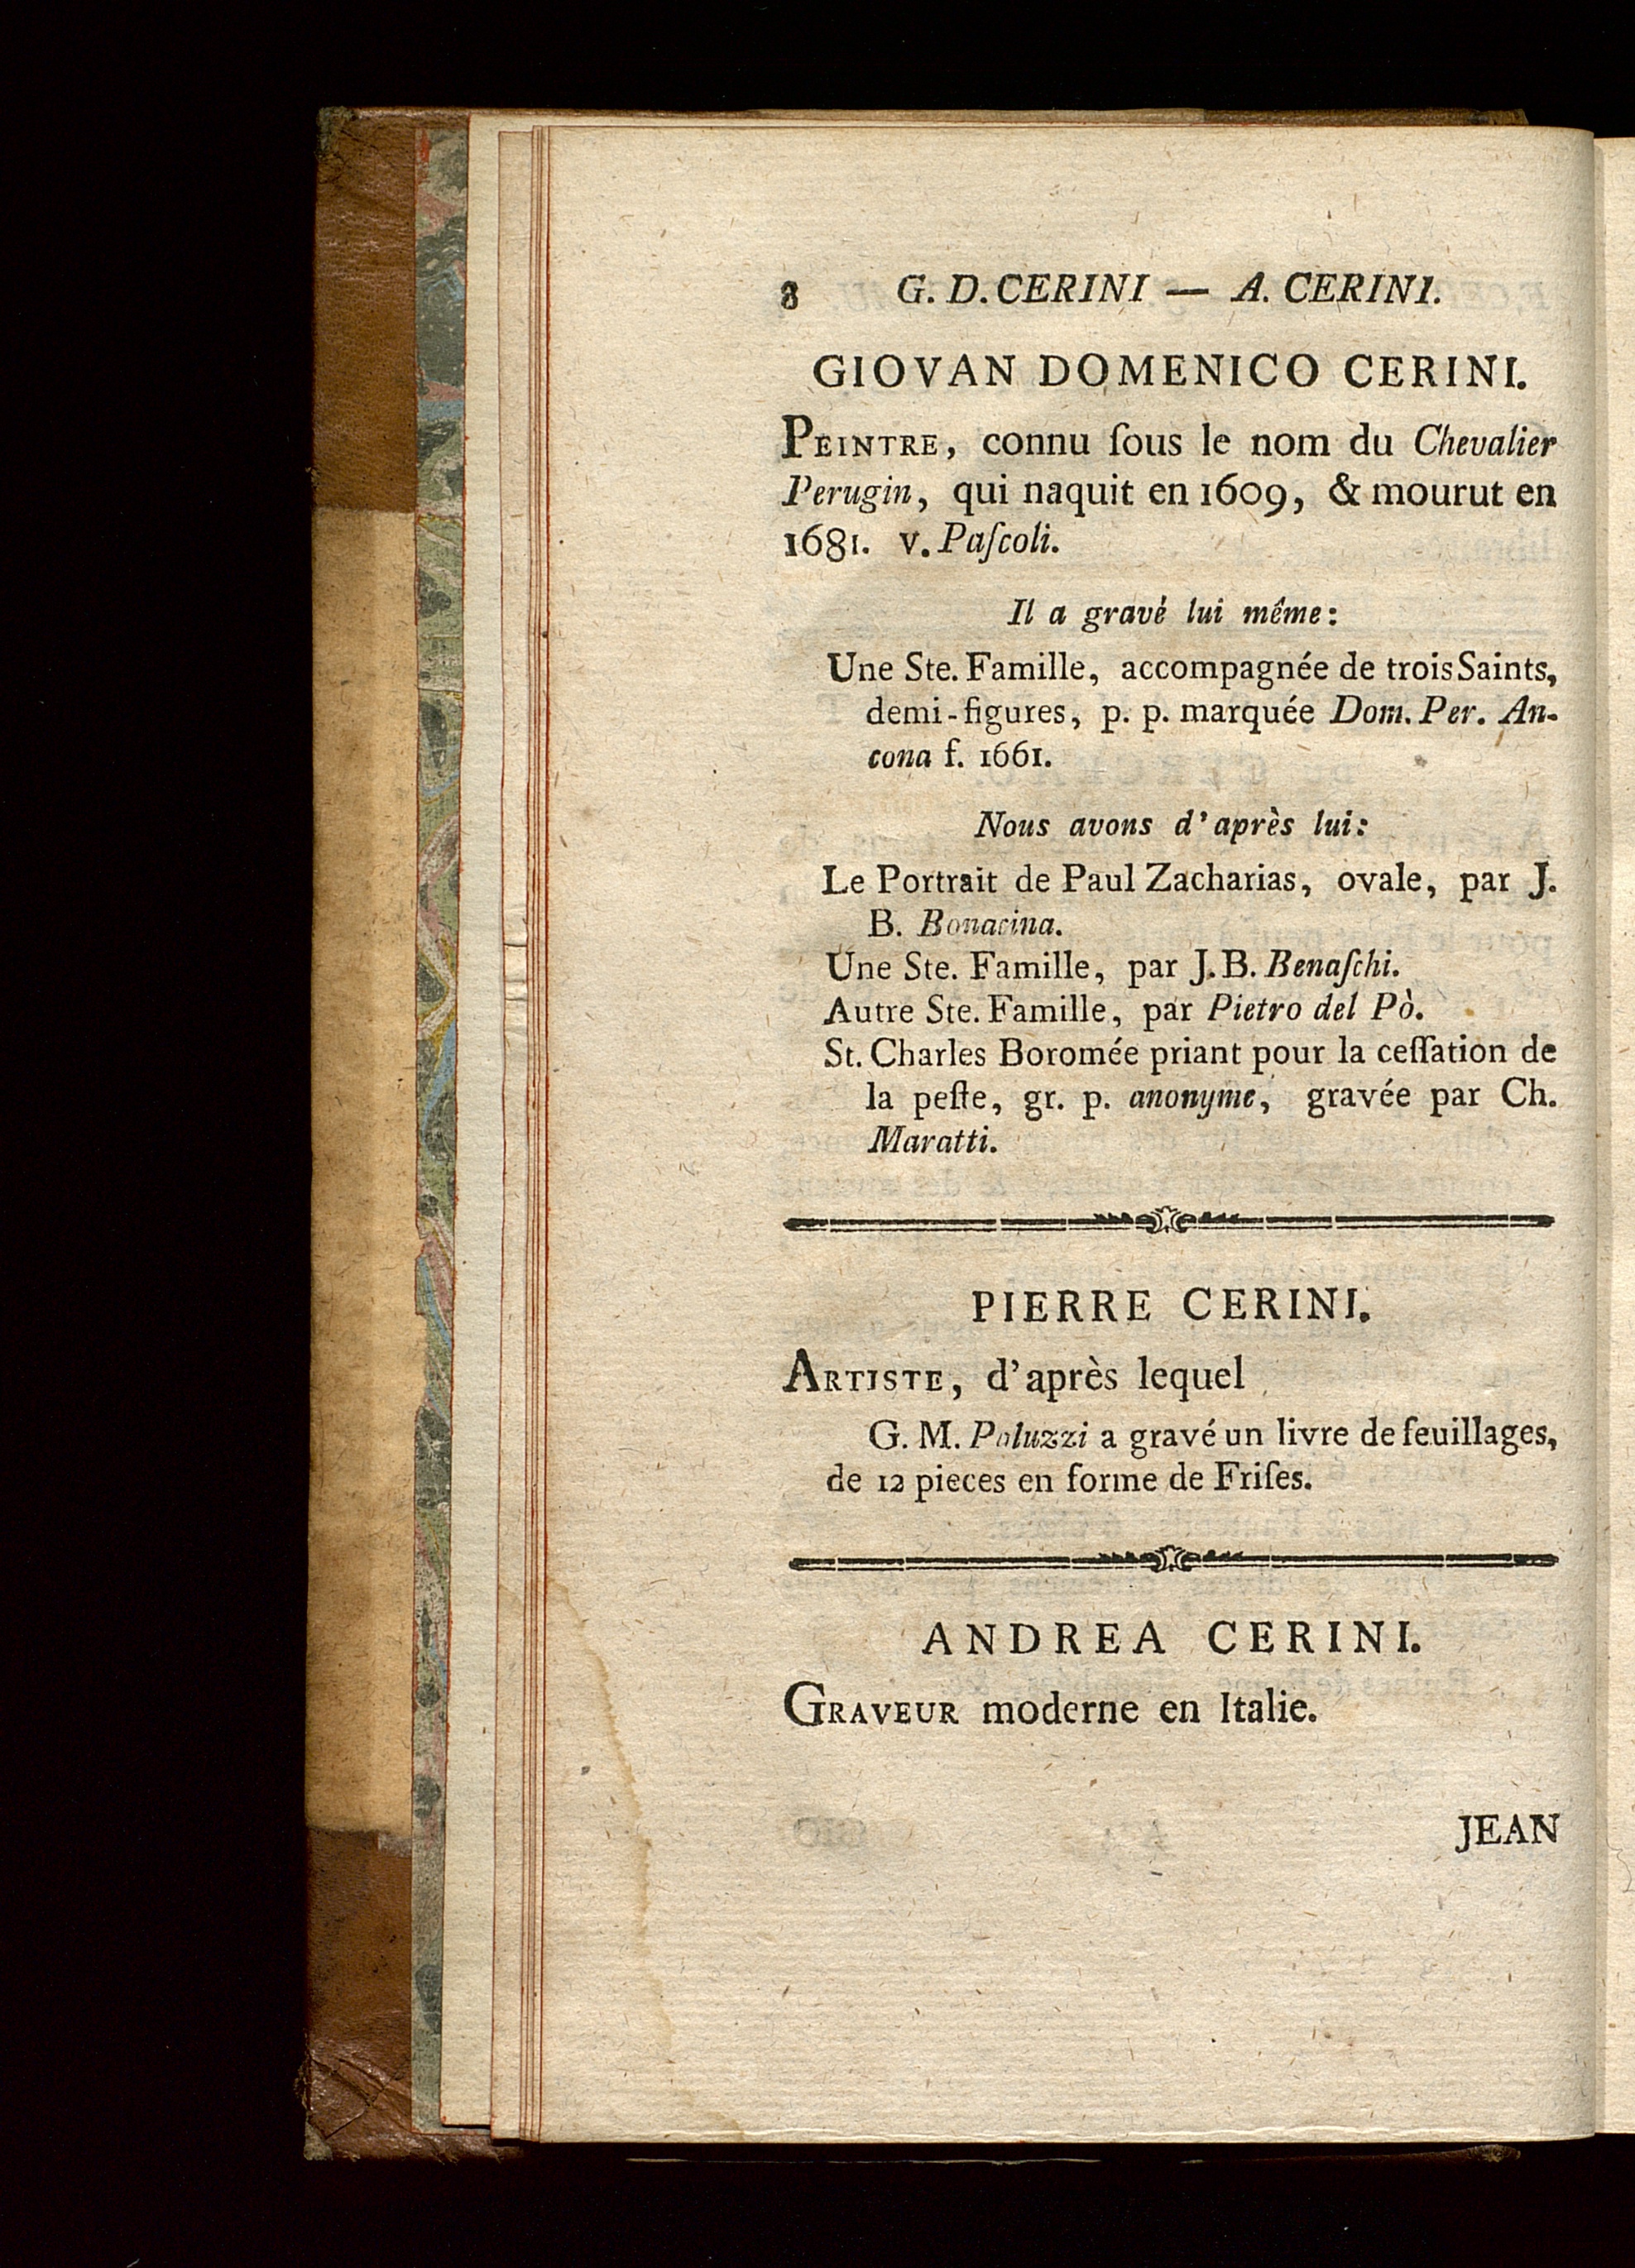 8 G. D. CERINI — A. CERINI.
GIOVAN DOMENICO CERINI.
PEINTRE, connu ſous le nom du Chevalier
Perugin, qui naquit en 1609, & mourut en
1681. v. Paſcoli.
Il a gravé lui même:
Une Ste. Famille, accompagnée de trois Saints,
demi-figures, p. p. marquée Dom. Per. An-
cona f. 1661.
Nous avons d'après lui:
Le Portrait de Paul Zacharias, ovale, par J.
B. Bonacina.
Une Ste. Famille, par J. B. Benaſchi.
Autre Ste. Famille, par Pietro del Pò.
St. Charles Boromée priant pour la ceſſation de
la peſte, gr. p. anonyme, gravée par Ch.
Maratti.
PIERRE CERINI.
ARTISTE, d'après lequel
G. M. Paluzzi a gravé un livre de feuillages,
de 12 pieces en forme de Friſes.
ANDREA CERINI.
GRAVEUR moderne en Italie.
JEAN